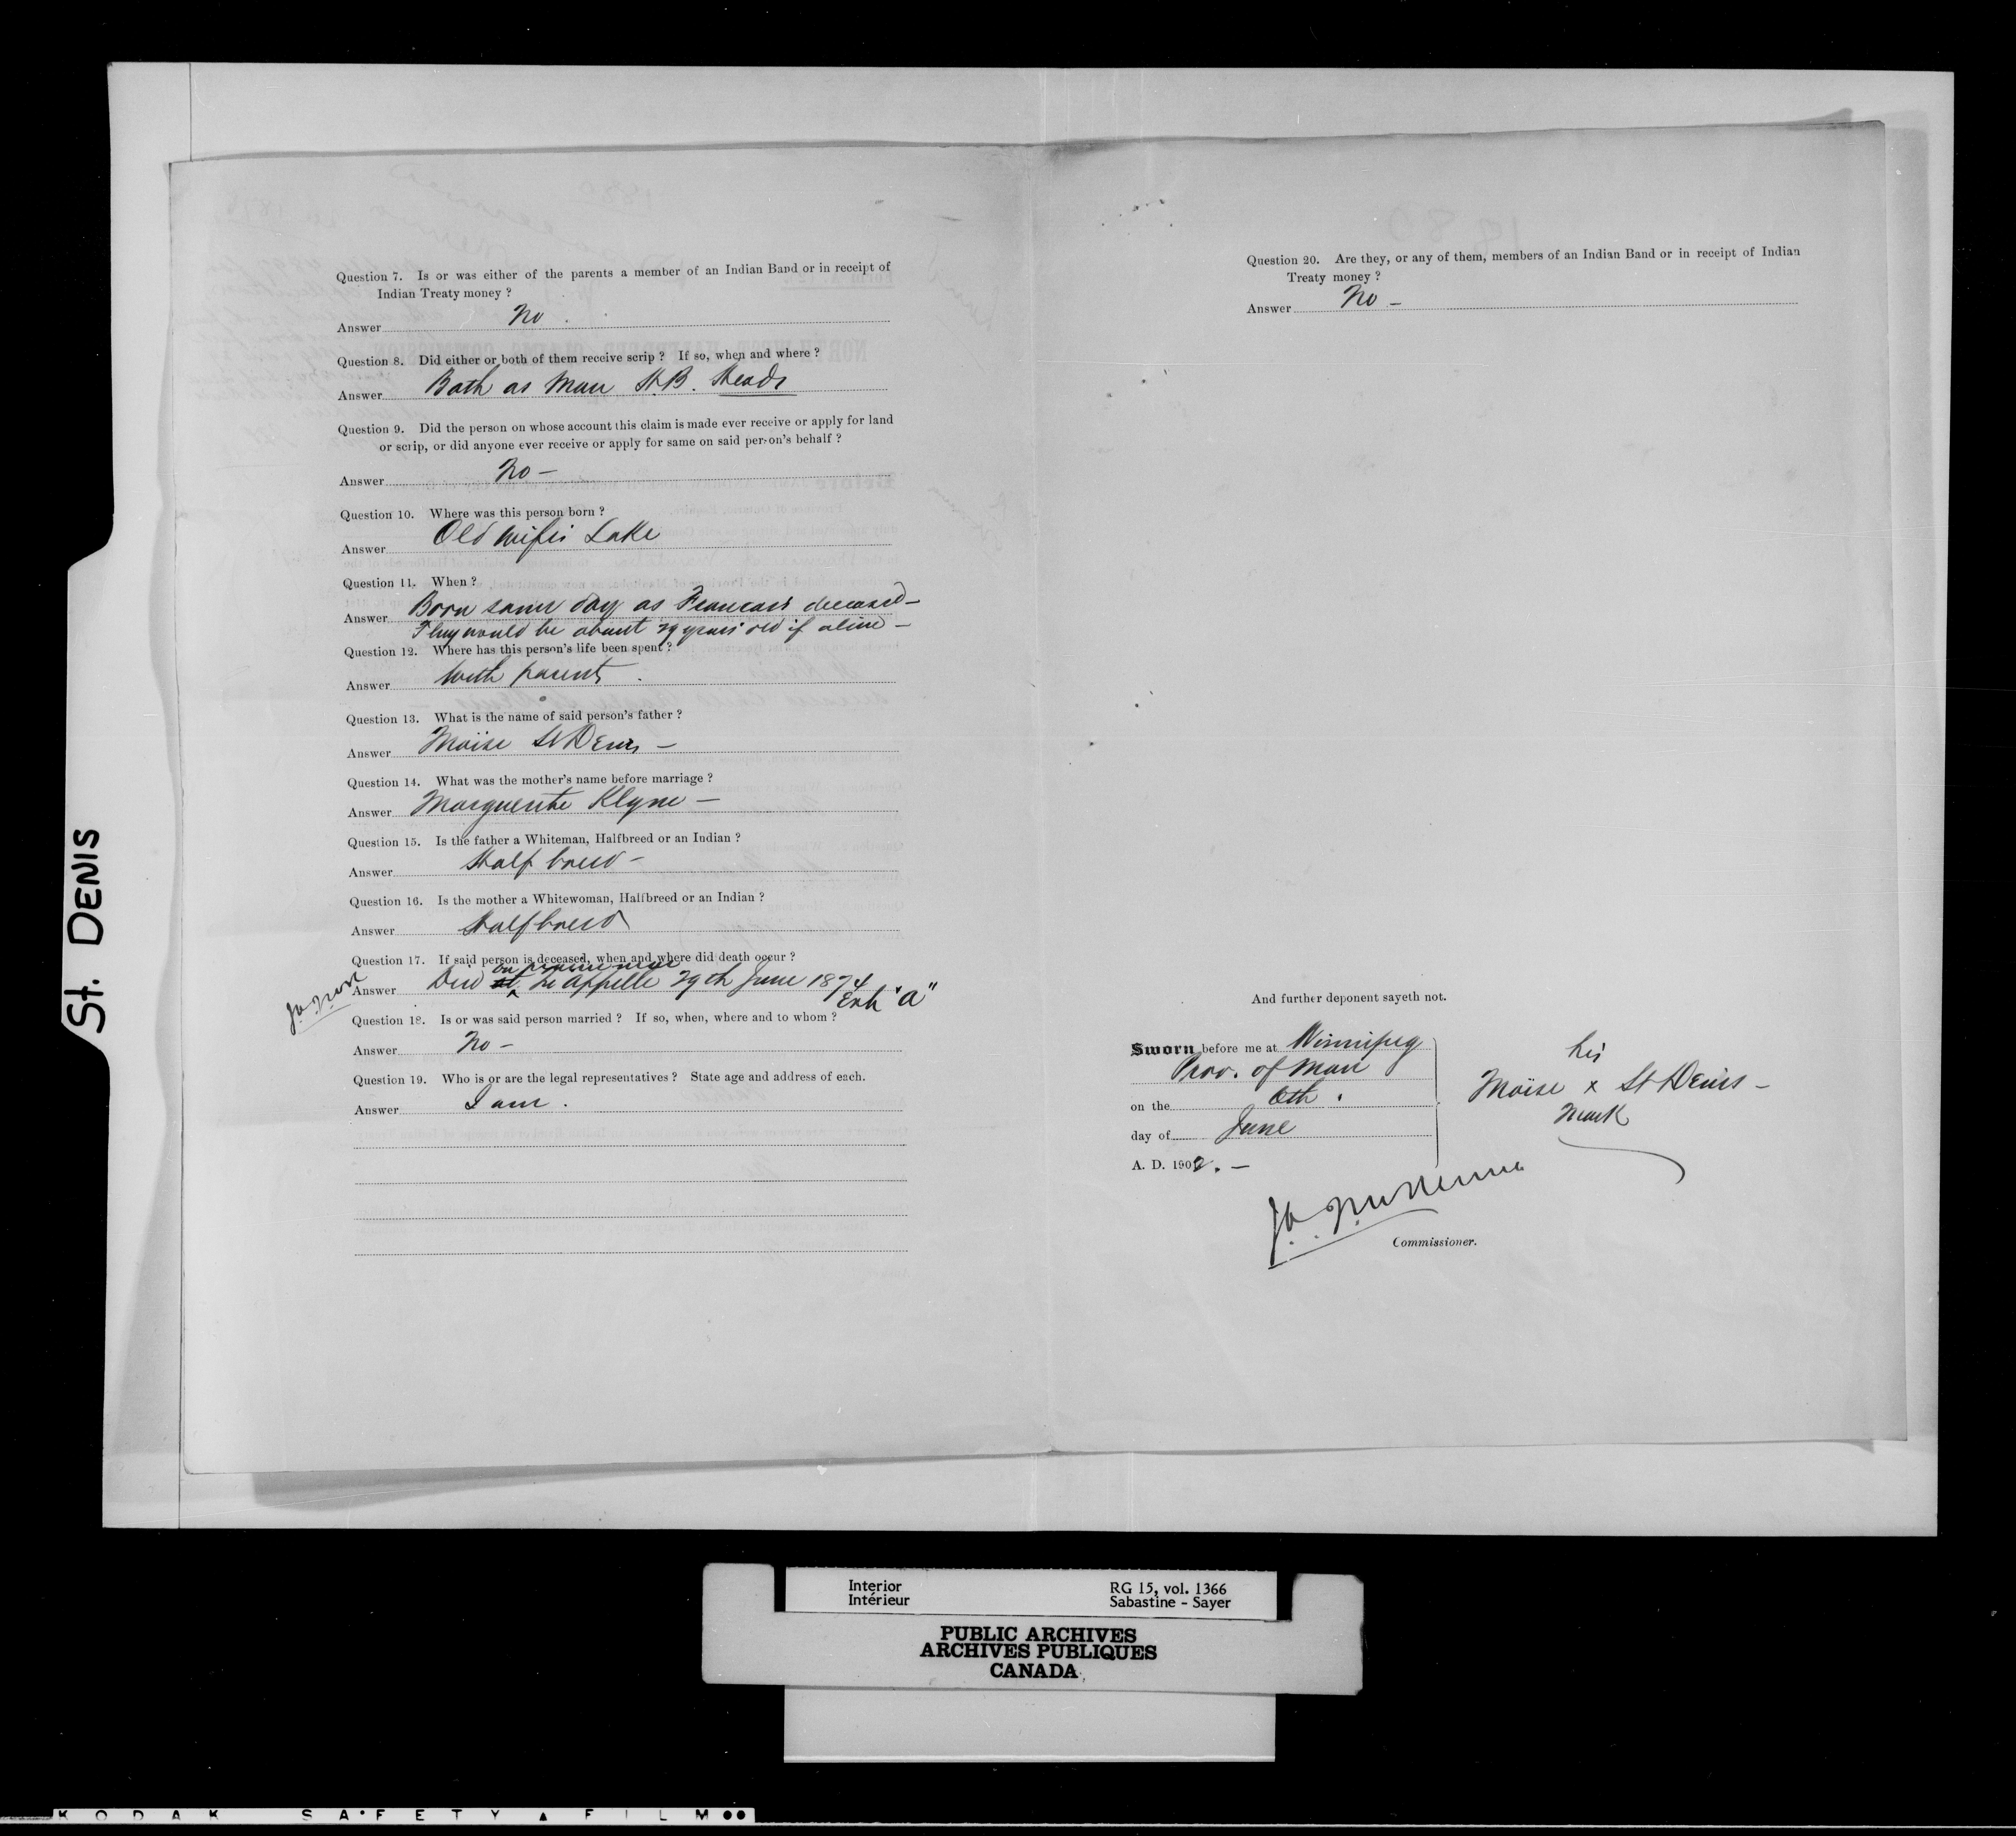 St. DENIS
Question 7. Is or was either of the parents a member of an Indian Band or in receipt of
Indian Treaty money ?
Answer No .
Question 8. Did either or both of them receive scrip ? If so, when and where ?
Answer Both as Man H.B. Heads
Question 9. Did the person on whose account this claim is made ever receive or apply for land
or scrip, or did anyone ever receive or apply for same on said person's behalf ?
Answer No —
Question 10. Where was this person born ?
Answer Old Wifes Lake
Question 11. When ?
Answer Born same day as Francois deceased —
They would be about 29 years old if alive —
Question 12. Where has this person's life been spent ?
Answer With parents .
Question 13. What is the name of said person's father ?
Answer Moïse St Denis —
Question 14. What was the mother's name before marriage ?
Answer Marguerite Klyne —
Question 15. Is the father a Whiteman, Halfbreed or an Indian ?
Answer Half breed —
Question 16. Is the mother a Whitewoman, Halfbreed or an Indian ?
Answer Halfbreed
Question 17. If said person is deceased, when and where did death occur ?
on prairie near
Answer Died at Qu'Appelle 29th June 1874
Exh "A"
Question 18. Is or was said person married ? If so, when, where and to whom ?
Answer No —
Question 19. Who is or are the legal representatives ? State age and address of each.
Answer I am .
Question 20. Are they, or any of them, members of an Indian Band or in receipt of Indian
Treaty money ?
Answer No —
And further deponent sayeth not.
Sworn before me at Winnipeg
Prov. of Man
on the 6th .
day of June
A. D. 1902. —
his
Moïse x St Denis —
mark
J.A. J. McKenna
Commissioner.
Interior
Intérieur
RG 15, vol. 1366
Sabastine - Sayer
PUBLIC ARCHIVES
ARCHIVES PUBLIQUES
CANADA
KODAK SAFETY FILM